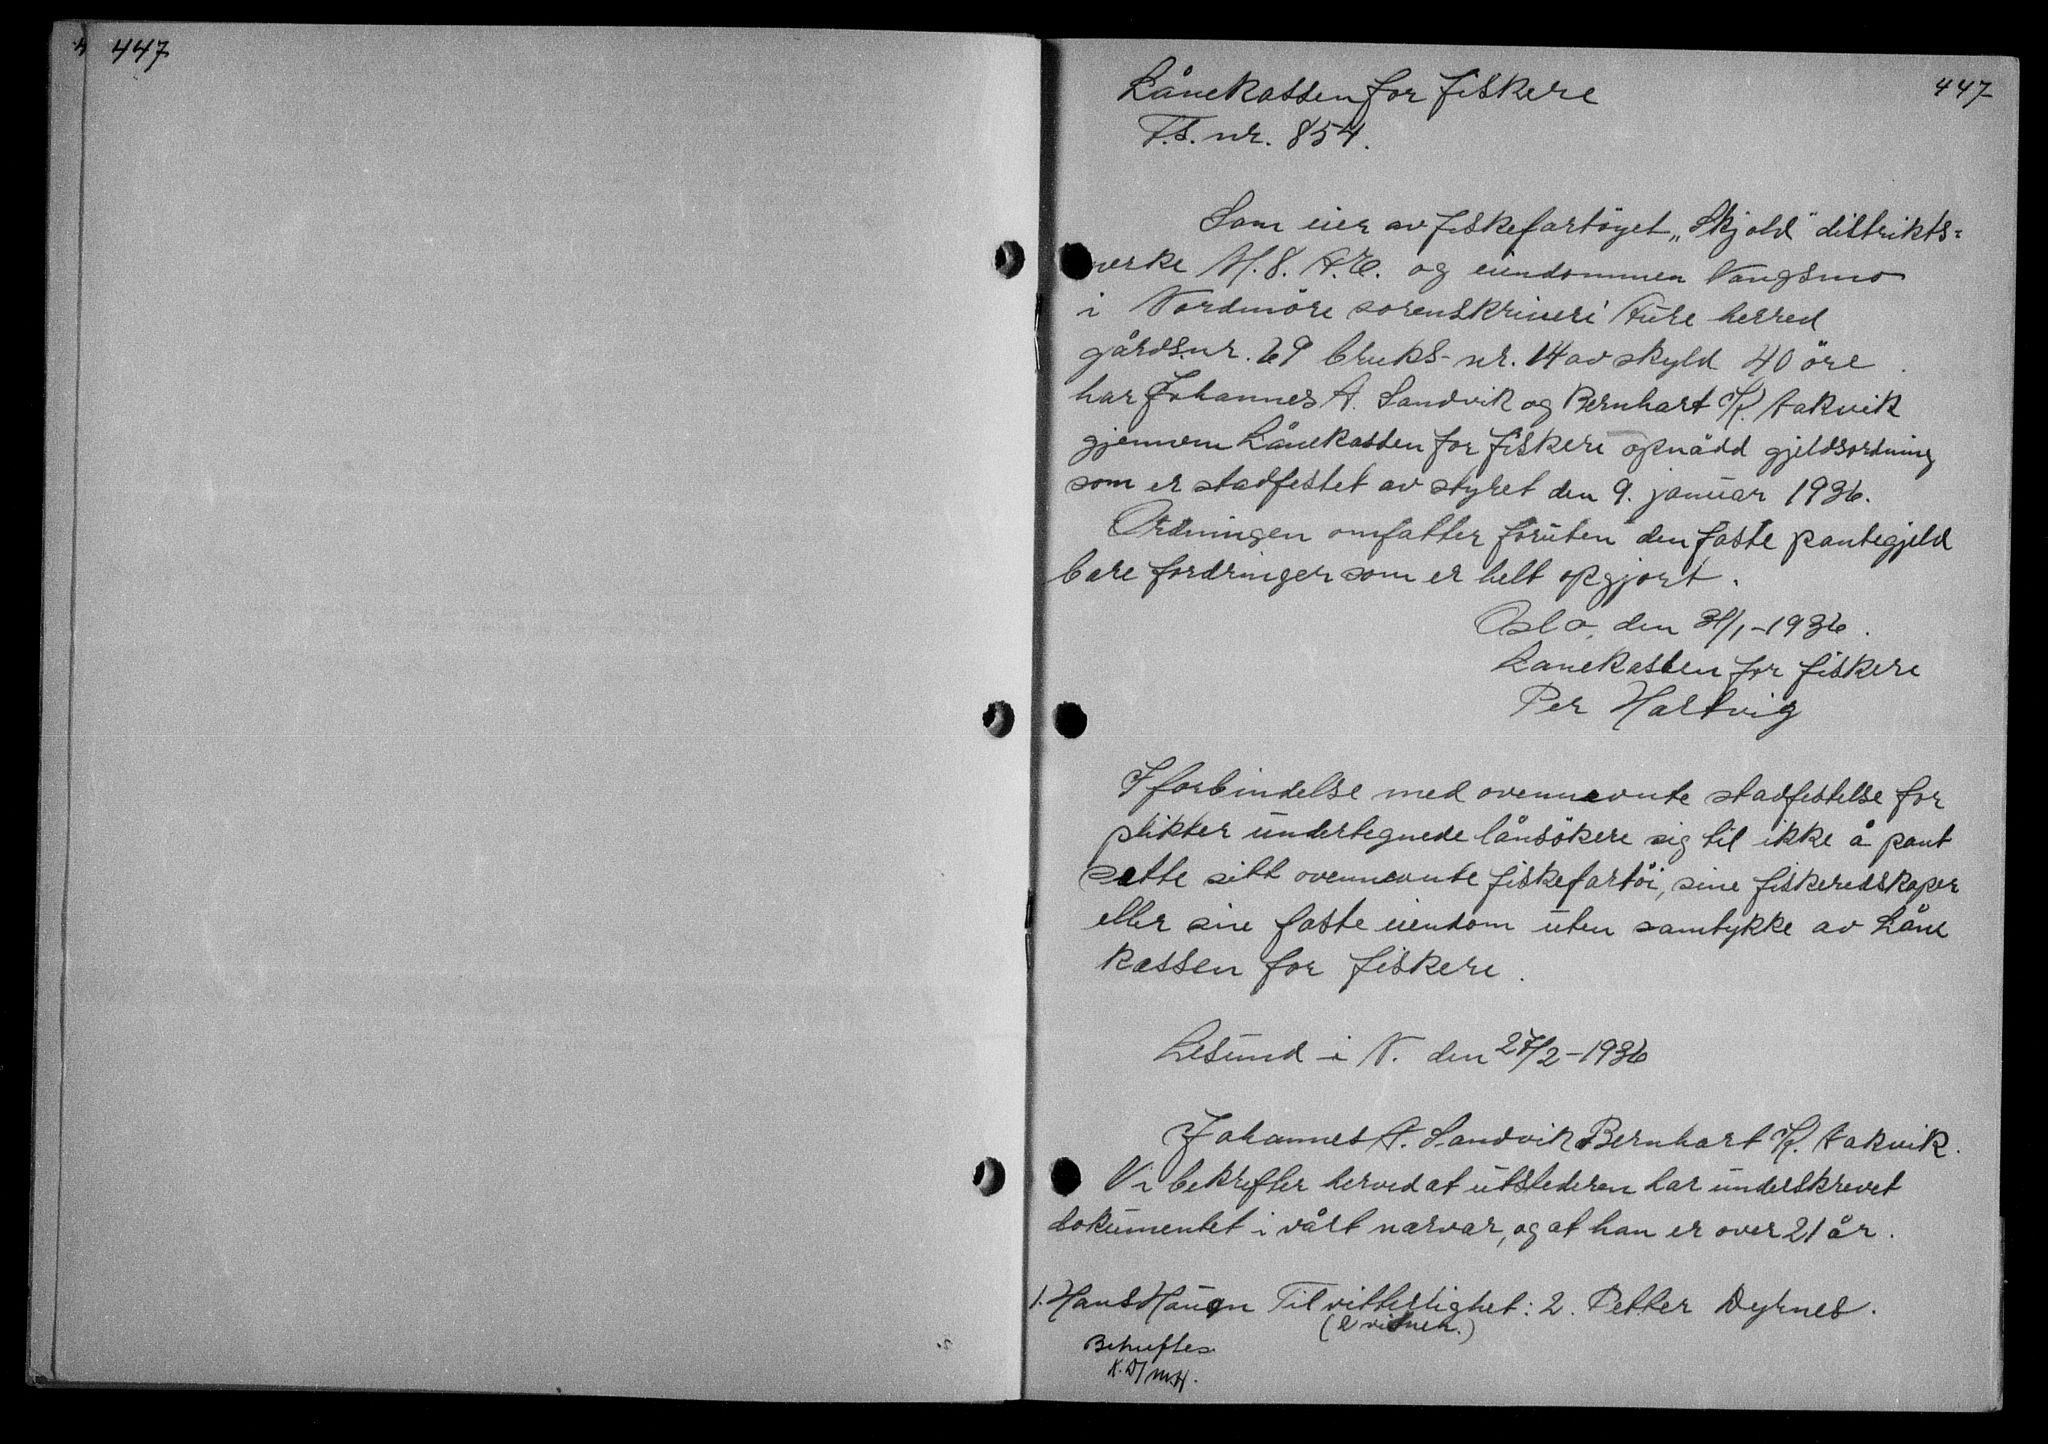 447
447
Lånekassen for fiskere
F.S. nr. 854.
Som eier av fiskefartöyet „Skjold" distrikts=
merke M. 8. A.E. og eiendommen Vangsmo
i Nordmöre sorenskriveri Ture herred
gårdsnr. 69 bruks-nr. 14 av skyld 40 öre
har Johannes A. Sandvik og Bernhart H. Aakvik
gjennem Lånekassen for fiskere opnådd gjeldsordning
som er stadfestet av styret den 9. januar 1936.
Ordningen omfatter foruten den faste pantegjeld
bare fordringer som er helt opgjort.
Oslo, den 31/1-1936.
Lanekassen for fiskere
Per Hartvig
I forbindelse med ovennevnte stadfestelse for
plikter undertegnede lånsökere sig til ikke å pant
sette sitt ovennevnte fiskefartöi, sine fiskeredskaper
eller sine faste eiendom uten samtykke av Låne
kassen for fiskere.
Lesund i N. den 27/2-1936
Johannes A. Sandvik Bernhart H. Aakvik.
Vi bekrefter herved at utstederen har underskrevet
dokumentet i vårt nærvær, og at han er over 21 år.
1. Hans Haugn Til vitterlighet: 2. Petter Dyrnes.
(2 vitner.)
Bekreftes
K.D/M.H.